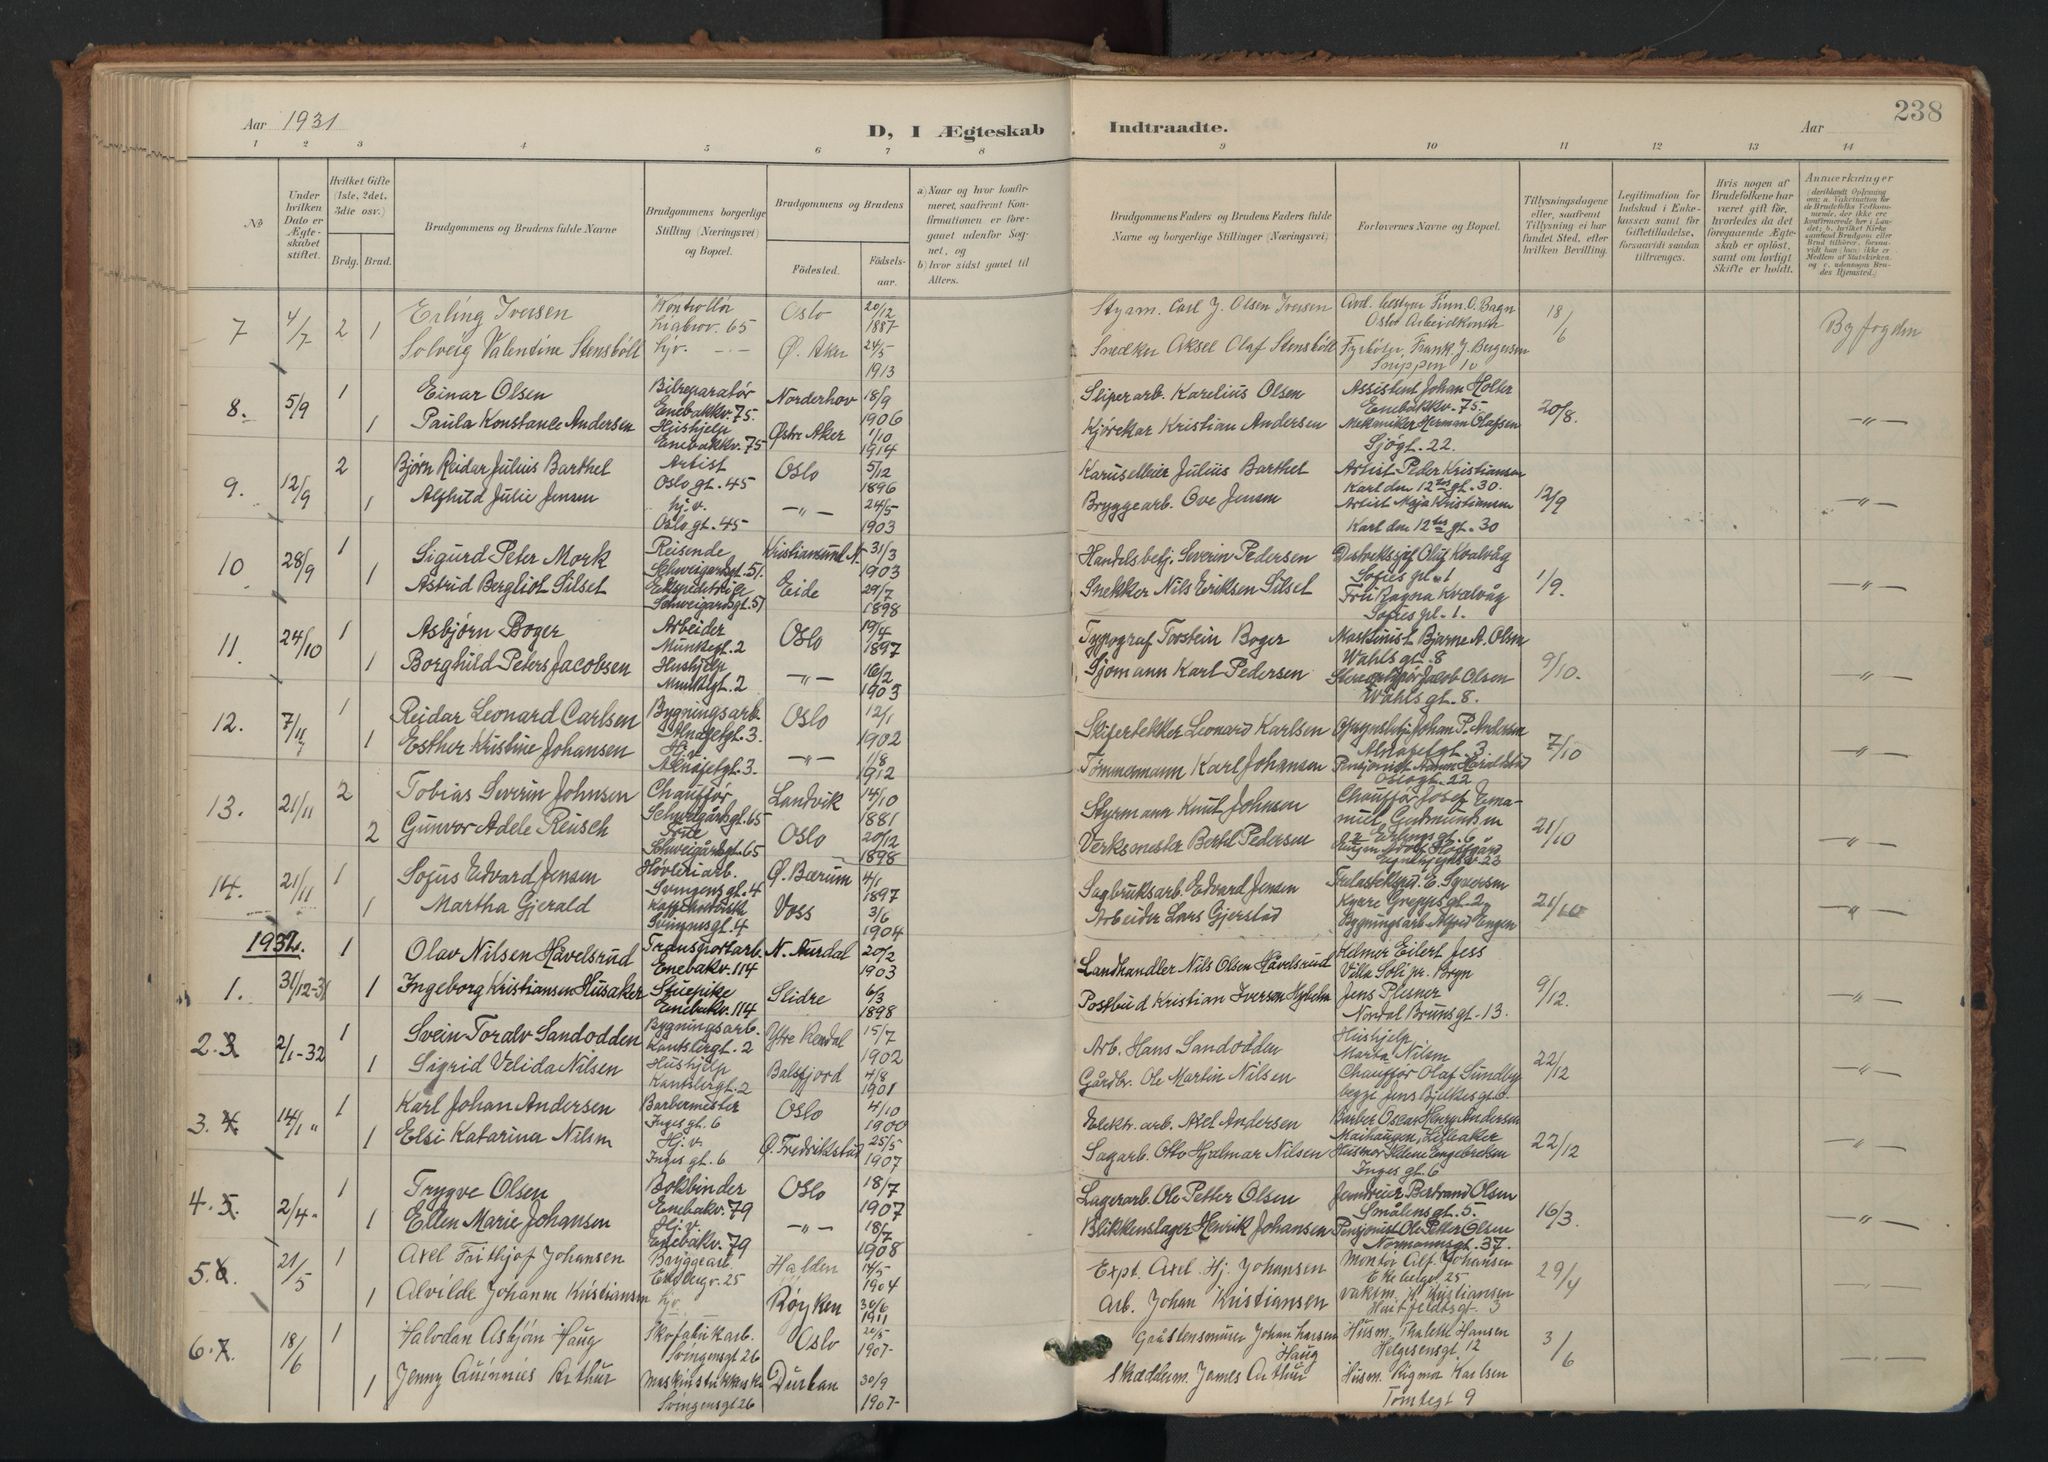 Aar 1931
D, I Ægteskab
Indtraadte.
Aar
238
1 2 3 4 5 6 7 8 9 10 11 12 13 14
No
Under hvilken Dato er Ægteskabet stiftet.
Hvilket Gifte (1ste, 2det, 3die osv.)
Brdg. Brud.
Brudgommens og Brudens fulde Navne
Brudgommens borgerlige Stilling (Næringsvei) og Bopæl.
Brudgommens og Brudens
Fødested.
Fødselsaar.
a) Naar og hvor konfirmeret, saafremt Konfirmationen er foregaaet udenfor Sognet, og
b) hvor sidst gaaet til Alters.
Brudgommens Faders og Brudens Faders fulde Navne og borgerlige Stillinger (Næringsvei)
Forlovernes Navne og Bopæl.
Tillysningsdagene eller, saafremt Tillysning ei har fundet Sted, efter hvilken Bevilling.
Legitimation for Indskud i Enkekassen samt for Giftetilladelse, forsaavidt saadan tiltrænges.
Hvis nogen af Brudefolkene har været gift før, hvorledes da det foregaaende Ægteskab er opløst, samt om lovligt Skifte er holdt.
Anmærkninger
7 4/7 2 1 Erling Iversen Kontrollør Ligbrov. 65 Oslo 20/12 1887 Styrm. Carl J. Olsen Iversen Avd. bestyrer Finn O. Bagn Oslo 18/6 Byfogden
Solveig Valentine Stensbøll Hjv. Ø. Aker 24/5 1913 Snedker Aksel Olaf Stensbøll Fyrbøter Frank J. Bergersen
8. 5/9 1 Einar Olsen Bilreparatør Enebakkv. 75. Norderhov 18/9 1906 Sliperarb. Karelius Olsen Assistent Johan Holter Enebakkv. 75. 20/8. —"—
1 Paula Konstanse Andersen Hushjelp Enebakkv. 75 Østre Aker 1/10 1914 Kjørekar Kristian Andersen Mekaniker Herman Olafsen Sjøgt. 22.
9. 12/9 2 Bjørn Reidar Julius Barthel Artist Oslogt. 45 Oslo 5/12 1896 Karuselleier Julius Barthel Artist Peder Kristiansen Karl den 12tes gt. 30. 12/9 —"—
1 Alfhild Julie Jensen hj.v. Oslogt. 45 —"— 24/5 1903 Bryggearb. Ove Jensen Artist Maja Kristiansen Karl den 12tes gt. 30
10 28/9 1 Sigurd Peter Mork Reisende Schweigaardsgt. 51. Kristiansund N. 31/3 1903 Handelsbetj. Severin Pedersen Olaf Kvalvåg Sofies pl. 1 1/9. —"—
1 Astrid Bergliot Silset Ekspeditrise Schweigardsgt. 51 Eide 29/7 1898 Snekker Nils Eriksen Silset Fru Ragna Kvalvåg Sofies pl. 1.
11. 24/10 1 Asbjørn Boger Arbeider Munkegt. 2 Oslo 19/4 1897 Typograf Torstein Boger Maskinist Bjarne A. Olsen Wahls gt. 8 9/10. —"—
1 Borghild Peters Jacobsen Hushjelp Munkegt. 2 —"— 16/2 1903 Sjømann Karl Pedersen Jacob Olsen Wahls gt. 8.
12. 7/11 1 Reidar Leonard Carlsen Bygningsarb. Alnafetgt. 3. Oslo 12/1 1902 Skifertekker Leonard Karlsen Johan P. Andersen Alnafetgt. 3 7/10 —"—
1 Esther Kristine Johansen Hj.v. Alnafetgt. 3. —"— 1/8 1912 Tømmermann Karl Johansen Pensjonist Oslogt. 22
13. 21/11 2 Tobias Severin Johnsen Chauffør Schweigårdsgt. 65 Landvik 14/10 1881 Styrmann Knut Johnsen Chauffør Josef Emanuel Gudmundsen Erlingsgt. 6 21/10 —"—
2 Gunvor Adele Reusch Frue Schweigårdsgt. 65 Oslo 20/12 1898 Verksmester Bertel Pedersen
14. 21/11 1 Sofus Edvard Jensen Høvleriarb. Svingensgt. 4 Ø. Bærum 4/1 1897 Sagbruksarb. Edvard Jensen E. Syversen 21/10 —"—
1 Martha Gjerald Svingensgt. 4 Voss 3/6 1904 Arbeider Lars Gjerstad Bygningsarb. Alfred Engen
1932.
1. 31/12-31 1 Olav Nilsen Håvelsrud Transportarb. Enebakv. 114 N. Aurdal 20/2 1903 Landhandler Nils Olsen Håvelsrud Kelner Eilert Jess Villa Soli pr. Bryn 9/12. —"—
1 Ingeborg Kristiansen Husaker Stuepike Enebakv. 114 Slidre 6/3 1898 Postbud Kristian Iversen Jens Plesner Nordal Brunsgt. 13.
2. 3 2/1-32 1 Svein Toralv Sandodden Bygningsarb. Kantslergt. 2 Ytre Rendal 15/7 1902 Arb. Hans Sandodden Hushjelp Marta Nilsen 22/12 —"—
1 Sigrid Velida Nilsen Hushjelp Kantslergt. 2 Balsfjord 4/8 1901 Gårdbr. Ole Martin Nilsen Chauffør Olaf Sundby Jens Bjelkesgt. 6.
3. 4 14/1 " 1 Karl Johan Andersen Barbermester Ingesgt. 6 Oslo 4/10 1900 Elektr. arb. Axel Andersen Barber Oscar Henry Andersen Maihaugen, Lilleaker 22/12 —"—
1 Elsi Katarina Nilsen Hj.v. Inges gt. 6 Ø. Fredrikstad 25/5 1907 Sagarb. Otto Hjalmar Nilsen Husmor Engebretsen Inges gt. 6
4. 5 2/4 " 1 Trygve Olsen Bokbinder Enebakv. 79 Oslo 18/7 1907 Lagerarb. Ole Petter Olsen Jerndreier Bertrand Olsen Smålensgt. 5. 16/3. —"—
1 Ellen Marie Johansen Hj.v. Enebakv. 79 —"— 18/7 1908 Blikkenslager Henrik Johansen Pensjonist Ole Petter Olsen Normannsgt. 37.
5. 6. 21/5 1 Axel Frithjof Johansen Bryggearb. Ekebergv. 25 Halden 14/5 1904 Expt. Axel Hj. Johansen Montør Alf Johansen 25 29/4 —"—
1 Alvilde Johanne Kristiansen hjv. Røyken 30/6 1911 Arb. Johan Kristiansen Kristiansen Huitfeldtsgt. 3
6. 7. 18/6 1 Halvdan Asbjørn Haug Skofabrikarb. Svingensgt 26 Oslo 20/5 1907 Gråstensmurer Johan Larsen Haug Husm. Thalette Hansen Helgesensgt. 12 3/6 —"—
1 Jenny Quinnies Arthur Svingensgt 26 Durban 30/9 1907 James Arthur Husm. Sigmor Karlsen Tomtegt 9